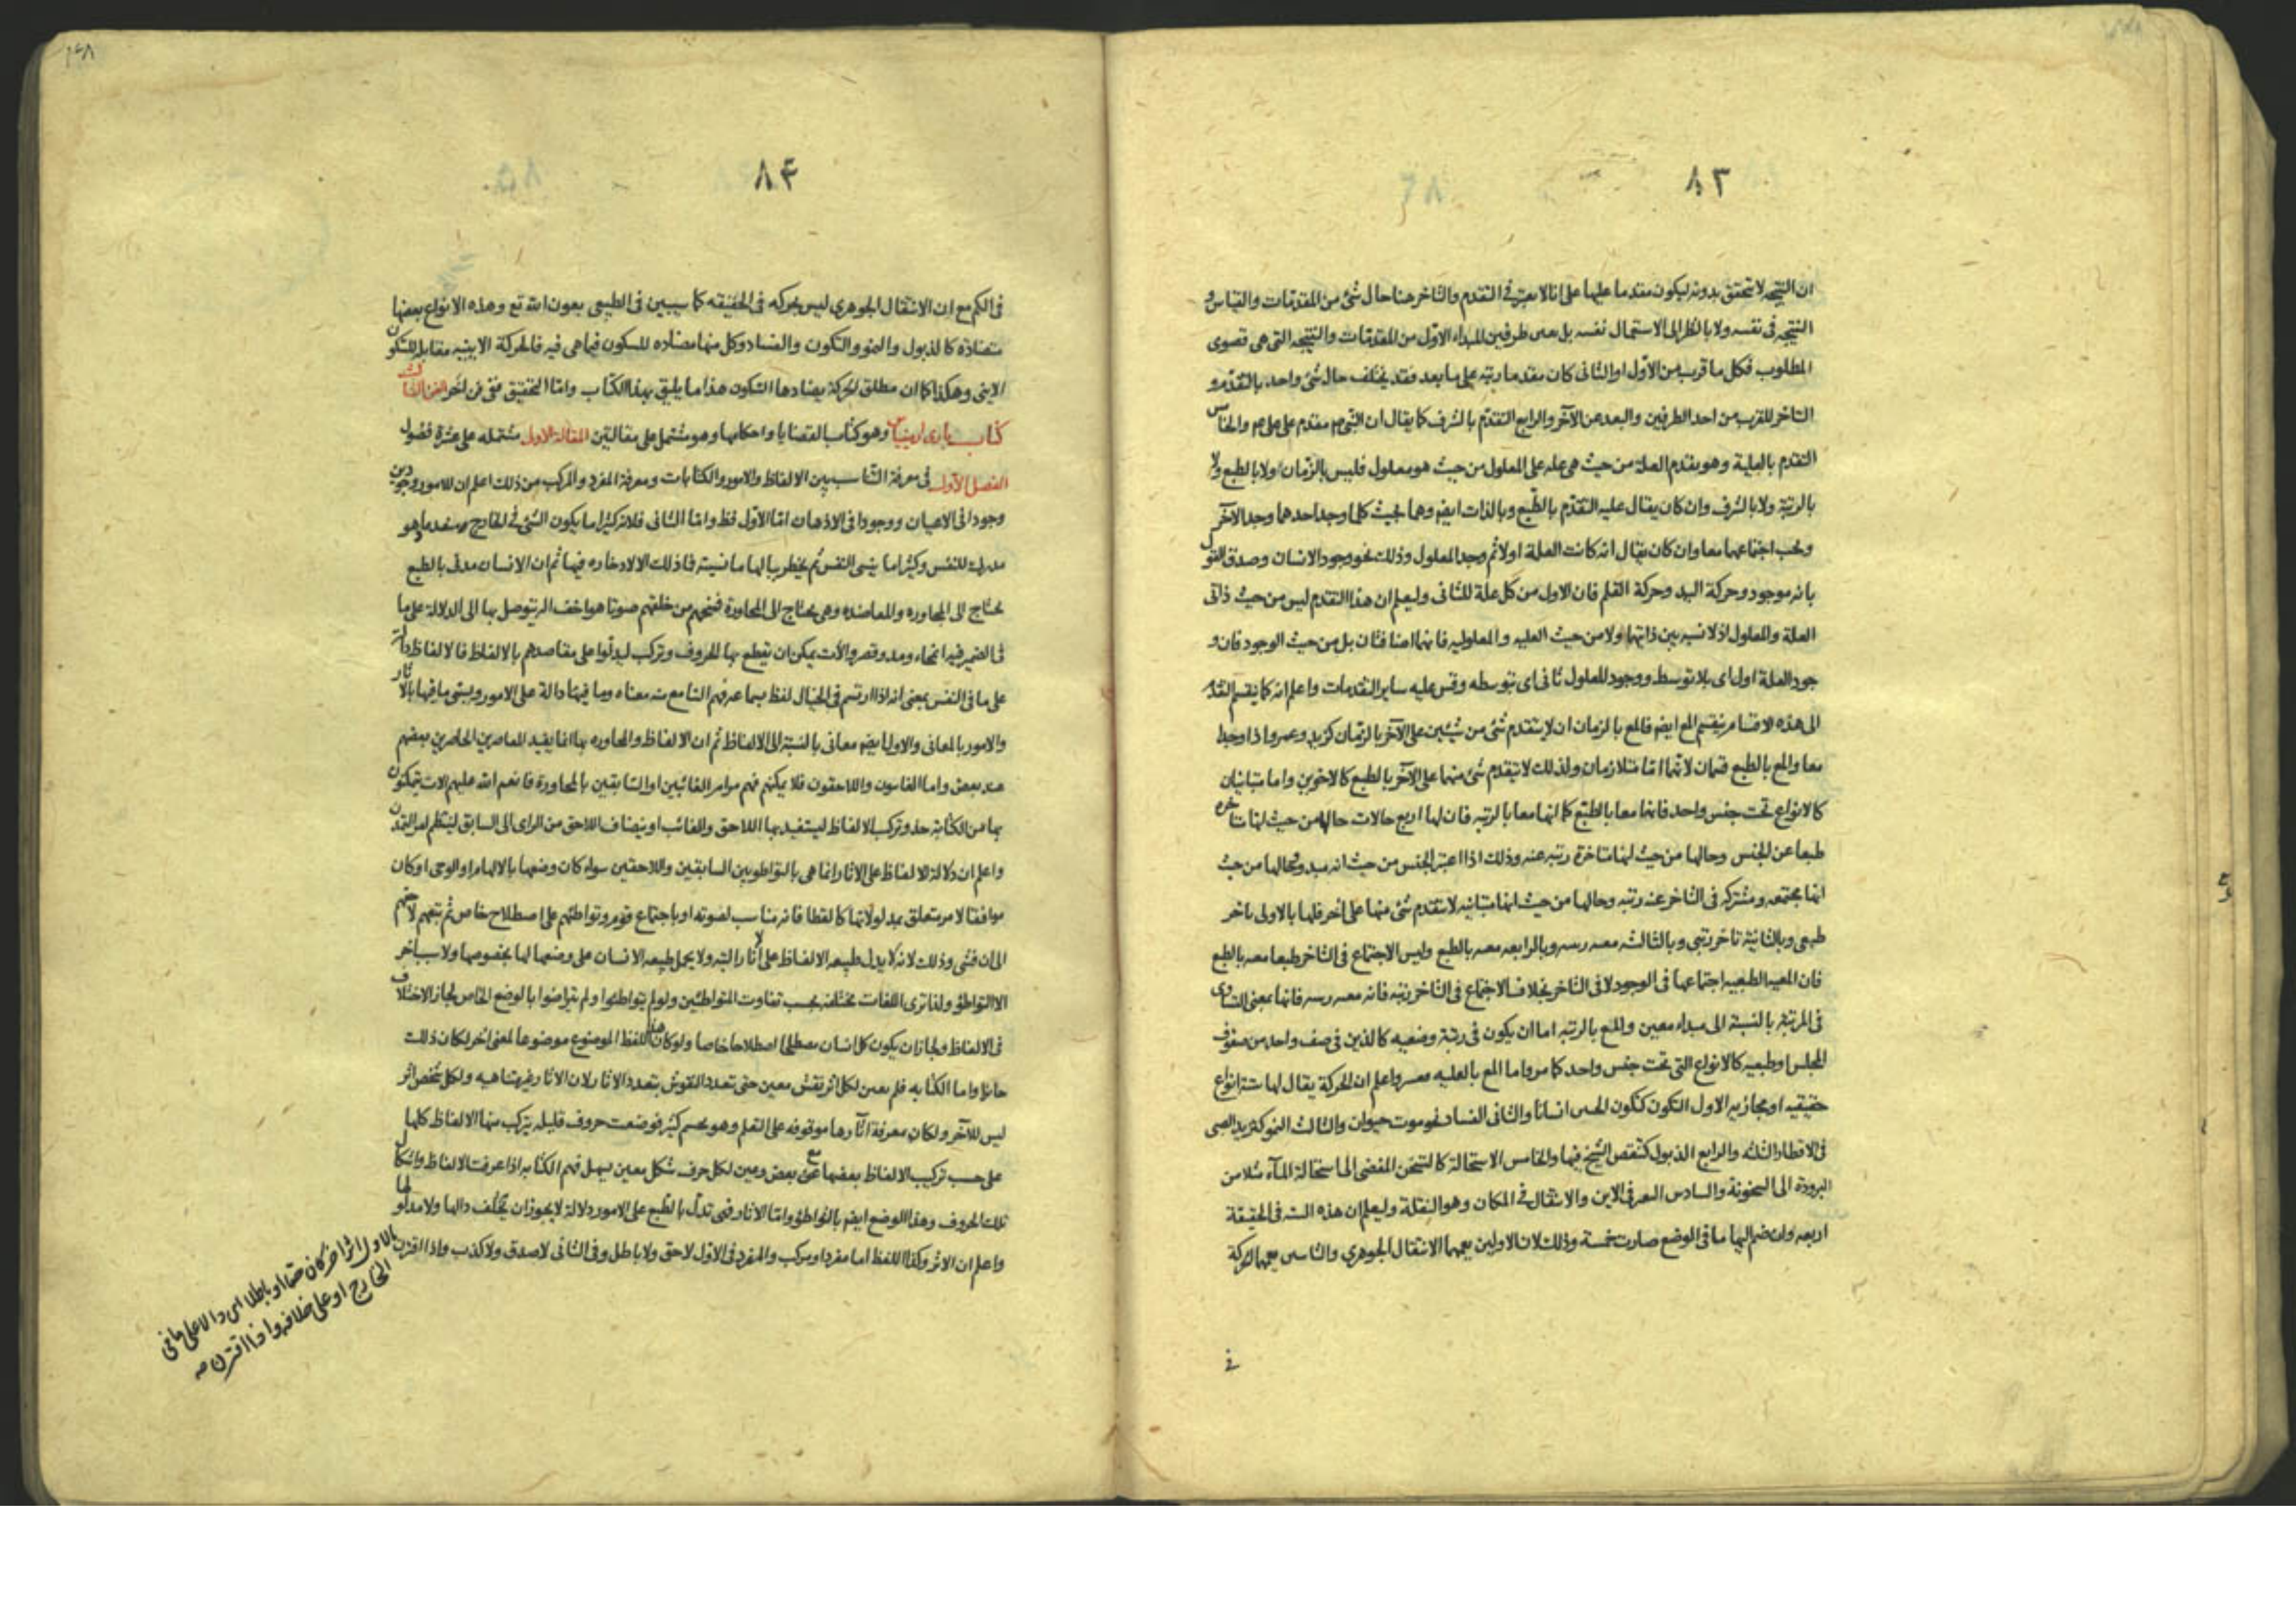 ٨٣
ان النتيجه لا تتحقق بدونه ليكون مقدما عليها على انا لا نعتبر فى التقدم والتاخر هنا حال شئ من المقدمات والقياس و
النتيجه فى نفسه ولا بالنظر الى الاستعمال نفسه بل بين طرفين المبداء الاول من المقدمات والنتيجه التى هى قصوى
المطلوب فكل ما قرب من الاول او الثانى كان مقدما رتبه على ما بعد فقد يختلف حال شئ واحد بالتقدم و
التاخر للقرب من احد الطرفين والبعد عن الآخر والرابع التقدم بالشرف كما يقال ان النبى ص مقدم على على ع والخامس
التقدم بالعلية وهو تقدم العلة من حيث هى علة على المعلول من حيث هو معلول فليس بالزمان ولا بالطبع ولا
بالرتبة ولا بالشرف وان كان يقال عليه التقدم بالطبع وبالذات ايضا وهما بحيث كلما وجد احدهما وجد الآخر
ويجب اجتماعهما معا وان كان يقال انه كانت العلة اولا ثم وجد المعلول وذلك نحو وجود الانسان وصدق القول
بانه موجود وحركة اليد وحركة القلم فان الاول من كل علة للثانى وليعلم ان هذا التقدم ليس من حيث ذاتى
العلة والمعلول اذ لا نسبه بين ذاتيهما ولا من حيث العليه والمعلوليه فانهما اضافتان بل من حيث الوجود فان و
جود العلة اول اى بلا توسط ووجود المعلول ثانى اى بتوسطه وقس عليه ساير التقدمات واعلم انه كما ينقسم التقدم
الى هذه الاقسام ينقسم المع ايضا فالمع بالزمان ان لا يتقدم شئ من شيئين على الآخر بالزمان كزيد وعمرو اذا وجدا
معا والمع بالطبع قسمان لانهما اما متلازمان ولذلك لا يتقدم شئ منهما على الآخر بالطبع كالاخوين واما متباينان
كالانواع تحت جنس واحد فانها معا بالطبع كما انها معا بالرتبه فان لها اربع حالات حالها من حيث انها متاخره
طبعا عن الجنس وحالها من حيث انها متاخرة رتبه عنه وذلك اذا اعتبر الجنس من حيث انه مبدء وحالها من حيث
انها مجتمعه ومشتركه فى التاخر عنه رتبه وحالها من حيث انها متباينه لا يتقدم شئ منها على اخر فلها بالاولى تاخر
طبعى وبالثانية تاخر رتبى وبالثالثه معيه رتبيه وبالرابعه معيه بالطبع وليس الاجتماع فى التاخر طبعا معيه بالطبع
فان المعيه الطبعيه اجتماعها فى الوجود لا فى التاخر بخلاف الاجتماع فى التاخر رتبه فانه معيه رتبيه فانها بمعنى التساوى
فى المرتبة بالنسبة الى مبداء معين والمع بالرتبه اما ان يكون فى رتبة وضعيه كالذين فى صف واحد من صفوف
المجلس او طبعيه كالانواع التى تحت جنس واحد كما مر واما المع بالعليه واعلم ان الحركة يقال لها ستة انواع
حقيقيه او مجازيه الاول التكون كتكون انسانا والثانى الفساد نحو موت حيوان والثالث النمو كتزيد الصبى
فى الاقطار الثلثه والرابع الذبول كتنقص الشيخ فيها والخامس الاستحالة كالتسخن المفضى الى استحالة الماء مثلا من
البرودة الى السخونة والسادس التغير فى الاين والانتقال فى المكان وهو النقلة وليعلم ان هذه الستة فى الحقيقة
اربعه وان ضم اليها ما فى الوضع صارت خمسة وذلك لان الاولين يعمهما الانتقال الجوهرى والتاسس يعمها الحركة
فى
٨٤
فى الكم مع ان الانتقال الجوهرى ليس بحركه فى الحقيقه كما سيبين فى الطبيعى بعون الله تع وهذه الانواع بعضها
متضادة كالذبول والنمو والتكون والفساد وكل منها مضاده للسكون فيما هى فيه فالحركة الاينيه مقابله للسكون
الاينى وهكذا كما ان مطلق الحركة يضادها السكون هذا ما يليق بهذا الكتاب واما التحقيق ففى فن آخر الفن الثالث
كتاب بارى ارمينياس وهو كتاب القضايا واحكامها وهو مشتمل على مقالتين المقالة الاولى مشتمله على عشرة فصول
الفصل الاول فى معرفة التناسب بين الالفاظ والامور والكتابات ومعرفة المفرد والمركب من ذلك اعلم ان للامور وجودين
وجودا فى الاعيان ووجودا فى الاذهان اما الاول فظ واما الثانى فلانه كثيرا ما يكون الشئ فى الخارج ما هو
مدرك للنفس وكثيرا ما ينسى النفس ثم يخطر ببالها ما نسيته فما ذلك الا لادخاره فيها ثم ان الانسان مدنى بالطبع
يحتاج الى المجاوره والمعاضده وهى يحتاج الى المحاورة فمنحهم من خلقهم صوتا هو اخف اليه يتوصل بها الى الدلالة على ما
فى الضمير فيه انحاء ومد وقصر والآت يمكن ان يقطع بها الحروف وتركب ليدلوا على مقاصدهم بالالفاظ فالالفاظ دالة
على ما فى النفس بمعنى انه اذا ارتسم فى الخيال لفظ بسماعه فهم السامع منه معناه وما فيها دالة على الامور ويسمى ما فيها بالآثار
والامور بالمعانى والاولى ايضا معانى بالنسبة الى الالفاظ ثم ان الالفاظ والمحاوره بها انما يفيد المعاصرين الحاضرين بعضهم
عند بعض واما الغائبون واللاحقون فلا يمكنهم فهم مرامر الغائبين او السابقين بالمحاورة فانعم الله عليهم الات يتمكنون
بها من الكتابة حذو تركيب الالفاظ ليستفيد بها اللاحق والغائب او يضاف اللاحق من الراى الى السابق لينتظم امر التمدن
واعلم ان دلالة الالفاظ على الاثار انما هى بالتواطو بين السابقين واللاحقين سواء كان وضعها بالالهام او الوحى او كان
موافقا لامر متعلق بمدلولاتها كالقطا فانه مناسب لصوته او باجتماع قوم وتواطئهم على اصطلاح خاص ثم تبعهم لاحقهم
الى ان فشى وذلك لانه لا يدل طبيعه الالفاظ على آثار البته ولا يحمل طبيعه الانسان على وضعها لها بخصوصها ولا سبب اخر
الا التواطؤ ولذا ترى اللغات مختلفه بحسب تفاوت المتواطئين ولو لم يتواطئوا ولم يتراضوا بالوضع الخاص لجاز الاختلاف
فى الالفاظ ولجاز ان يكون كل انسان مصطلحا اصطلاحا خاصا ولو كان هذا اللفظ الموضوع موضوعا لمعنى اخر لكان ذلك
جايزا واما الكتابه فلم يعين لكل اثر نقش معين حتى تعدد النقوش بتعدد الاثار لان الاثار غير متناهيه ولكل شخص اثر
ليس للآخر ولكان معرفة آثارها موقوفه على التعلم وهو تجسم كثير فوضعت حروف قليله يتركب منها الالفاظ كلها
على حسب تركيب الالفاظ بعضها مع بعض وعين لكل حرف شكل معين يسهل فهم الكتابه اذا عرفت الالفاظ واشكال
تلك الحروف وهذا الوضع ايضا بالتواطؤ واما الآثار فهى تدل بالطبع على الامور دلالة لا يجوز ان يختلف دالها ولا مدلولها
واعلم ان الاثر وكذا اللفظ اما مفرد او مركب والمفرد فى الاول لا حق ولا باطل وفى الثانى لا صدق ولا كذب واذا اقترن
بالاول اثرا اخر كان حقا او باطلا اى دالا على ما فى
الخارج او على خلافه واذا اقترن